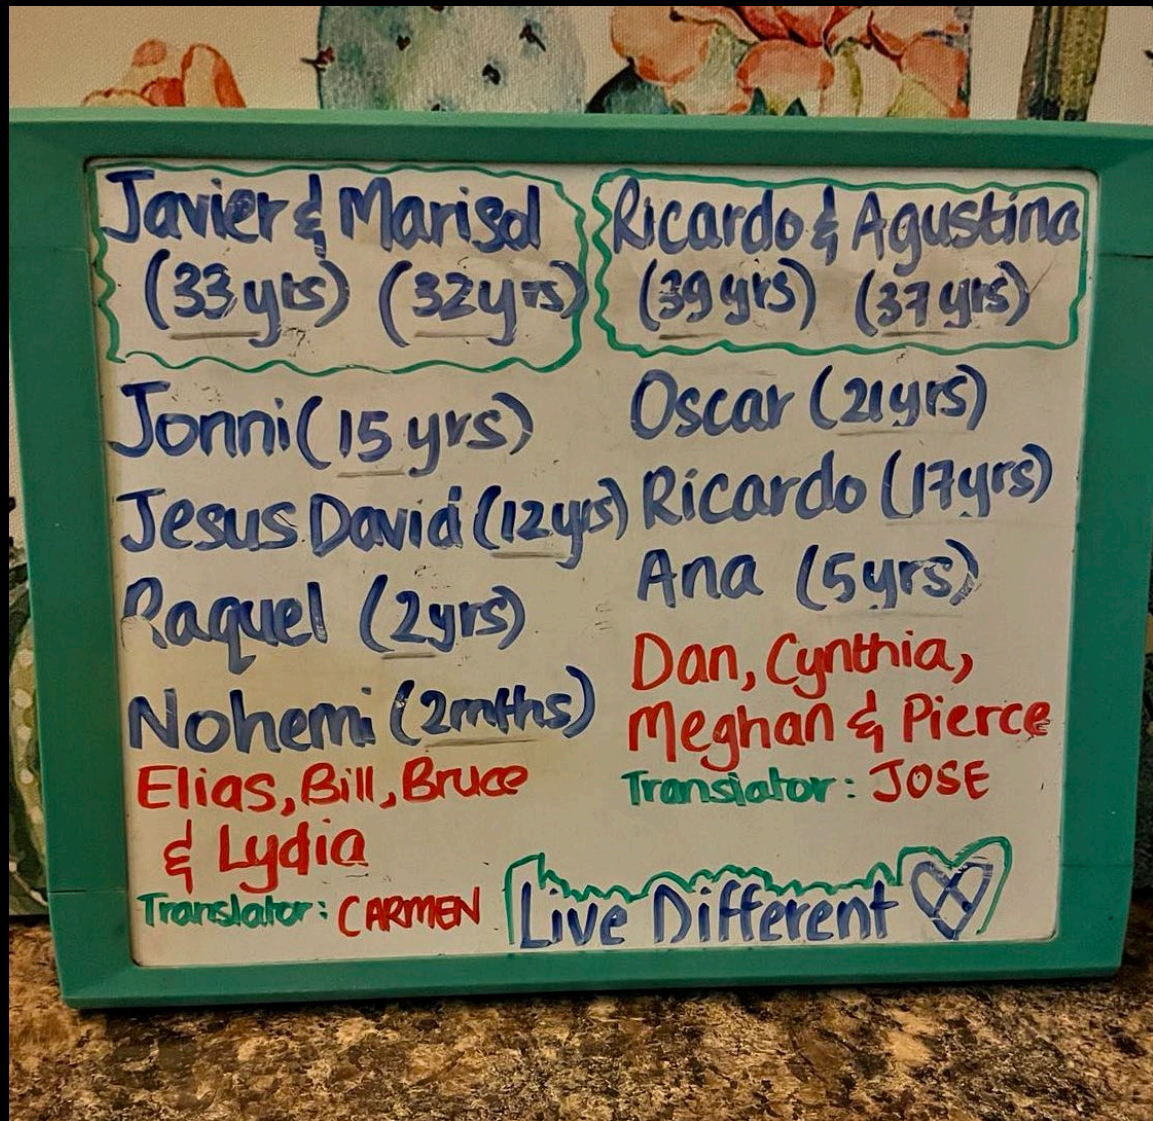 Javier & Marisol
(33 yrs) (32 yrs)
Jonni (15 yrs)
Jesus David (12 yrs)
Raquel (2 yrs)
Nohemi (2 mths)
Elias, Bill, Bruce
& Lydia
Translator: CARMEN
Ricardo & Agustina
(39 yrs) (37 yrs)
Oscar (21 yrs)
Ricardo (17 yrs)
Ana (5 yrs)
Dan, Cynthia,
Meghan & Pierce
Translator: JOSE
Live Different